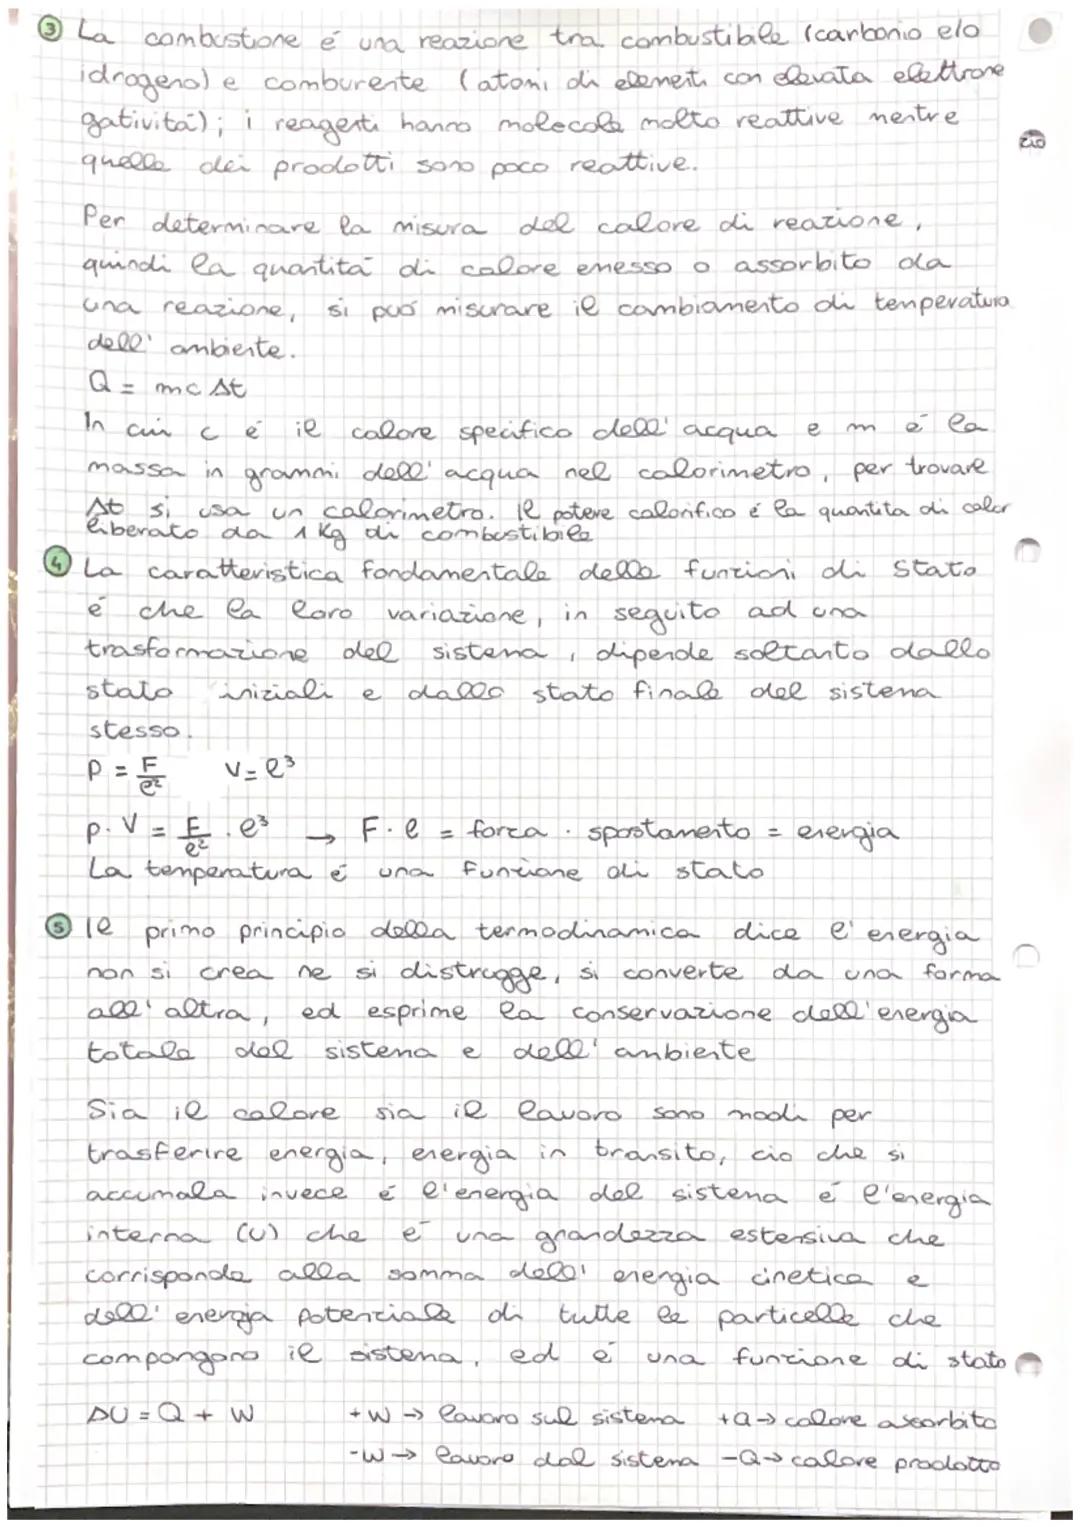 ③ La combustione é una reazione tra combustibile (carbonio e/o
idrogeno) e comburente (atomi di elementi con elevata elettrone
gativitá); i reagenti hanno molecole molto reattive mentre
quelle dei prodotti sono poco reattive.
Per determinare la misura del calore di reazione,
quindi la quantitá di calore emesso o assorbito da
una reazione, si puó misurare il cambiamento di temperatura
dell' ambiente.
Q = mc Δt
In cui c é il calore specifico dell' acqua e m é la
massa in grammi dell' acqua nel calorimetro, per trovare
Δt si usa un calorimetro. Il potere calorifico é la quantita di calor
liberato da 1 Kg di combustibile
④ La caratteristica fondamentale delle funzioni di stato
é che la loro variazione, in seguito ad una
trasformazione del sistema, dipende soltanto dallo
stato iniziali e dallo stato finale del sistema
stesso.
P = F/l² V = l³
p. V = F/l² . l³ → F. l = forza . spostamento = energia
La temperatura é una funzione di stato
⑤ Il primo principio della termodinamica dice l' energia
non si crea ne si distrugge, si converte da una forma
all' altra, ed esprime la conservazione dell'energia
totale del sistema e dell' ambiente
Sia il calore sia il lavoro sono modi per
trasferire energia, energia in transito, cio che si
accumula invece é l'energia del sistema é l'energia
interna (U) che é una grandezza estensiva che
corrisponde alla somma dell' energia cinetica e
dell' energia potenziale di tutte le particelle che
compongono il sistema, ed é una funzione di stato
ΔU = Q + W +W → lavoro sul sistema +Q → calore assorbito
-W → lavoro dal sistema -Q → calore prodotto